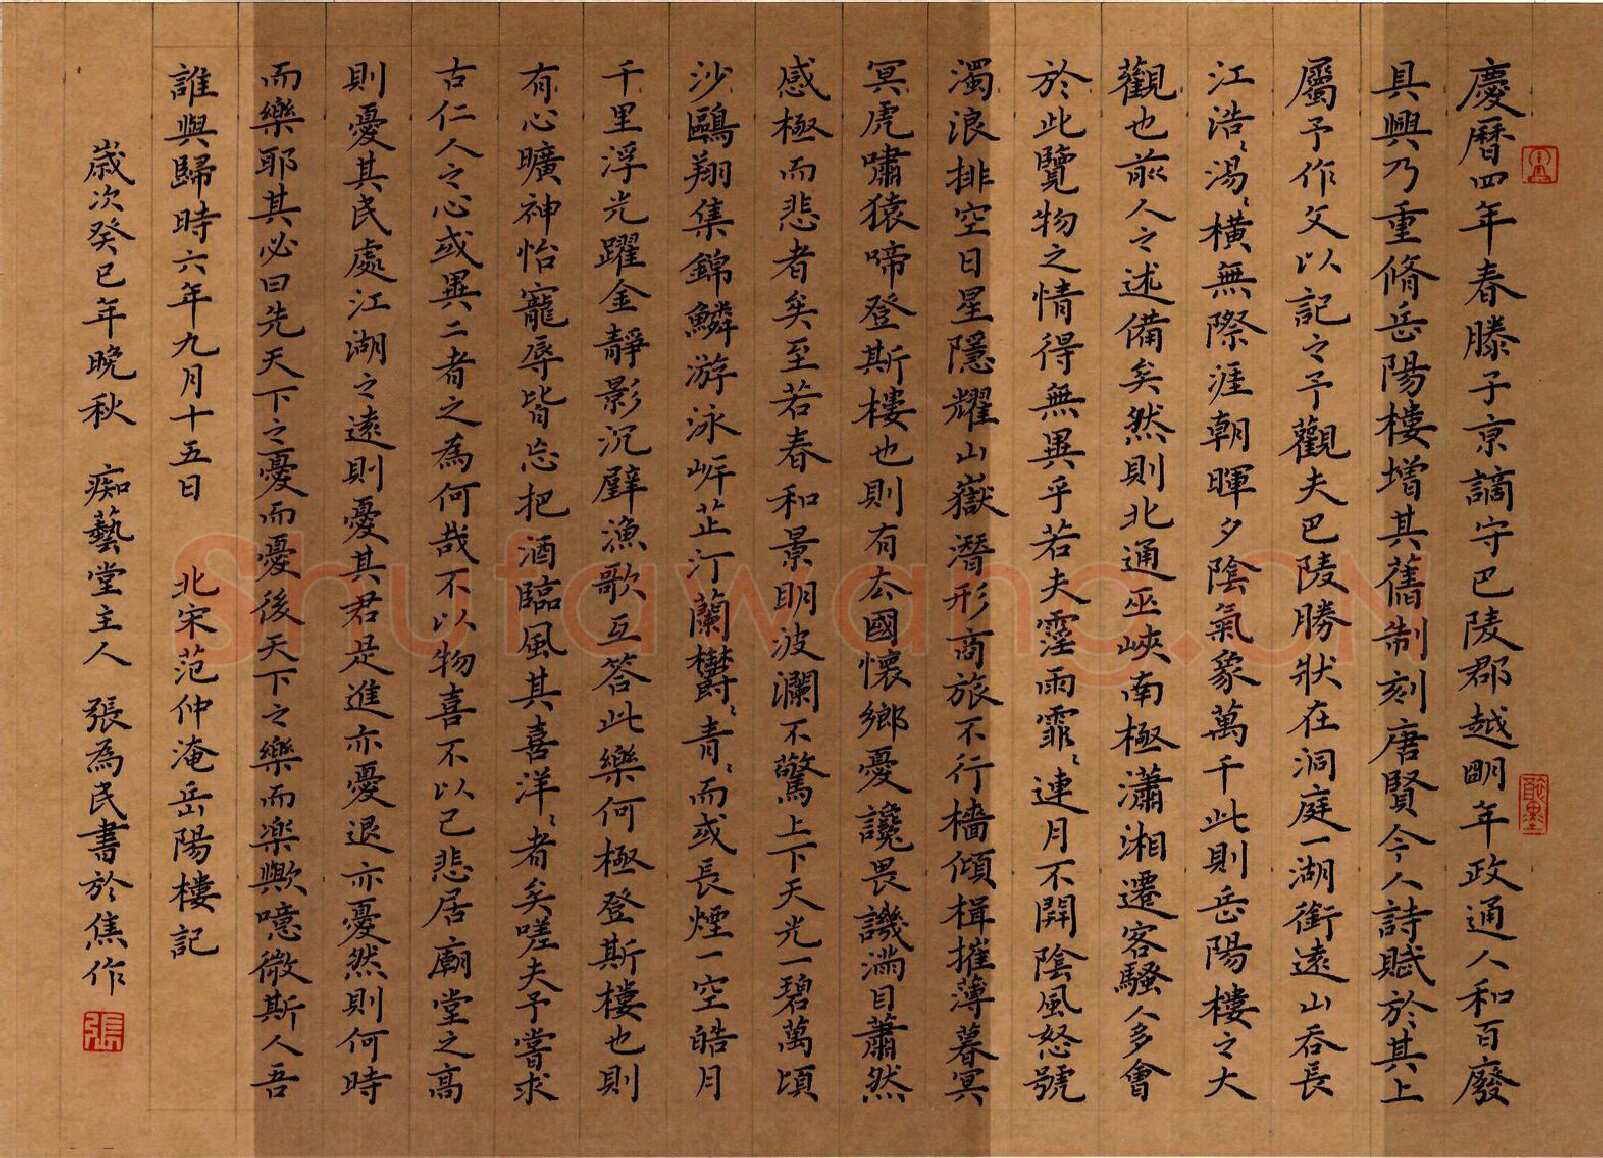 慶曆四年春滕子京謫守巴陵郡越明年政通人和百廢
具興乃重脩岳陽樓增其舊制刻唐賢今人詩賦於其上
屬予作文以記之予觀夫巴陵勝狀在洞庭一湖銜遠山吞長
江浩〻湯〻橫無際涯朝暉夕陰氣象萬千此則岳陽樓之大
觀也前人之述備矣然則北通巫峽南極瀟湘遷客騷人多會
於此覽物之情得無異乎若夫霪雨霏〻連月不開陰風怒號
濁浪排空日星隱耀山嶽潛形商旅不行檣傾楫摧薄暮冥
冥虎嘯猿啼登斯樓也則有去國懷鄉憂讒畏譏滿目蕭然
感極而悲者矣至若春和景明波瀾不驚上下天光一碧萬頃
沙鷗翔集錦鱗游泳岸芷汀蘭鬱〻青〻而或長煙一空皓月
千里浮光躍金靜影沉璧漁歌互答此樂何極登斯樓也則
有心曠神怡寵辱皆忘把酒臨風其喜洋〻者矣嗟夫予嘗求
古仁人之心或異二者之為何哉不以物喜不以己悲居廟堂之高
則憂其民處江湖之遠則憂其君是進亦憂退亦憂然則何時
而樂耶其必曰先天下之憂而憂後天下之樂而樂歟噫微斯人吾
誰與歸時六年九月十五日 北宋范仲淹岳陽樓記
歲次癸巳年晚秋 痴藝堂主人 張為民書於焦作
張
Shufawang.CN